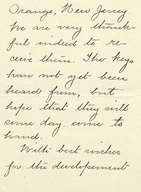 Orange, New Jersey.
We are very thank-
ful indeed to re-
ceive them. The keys
have not yet been
heard from, but
hope that they will
some day come to
hand.
With best wishes
for the developement